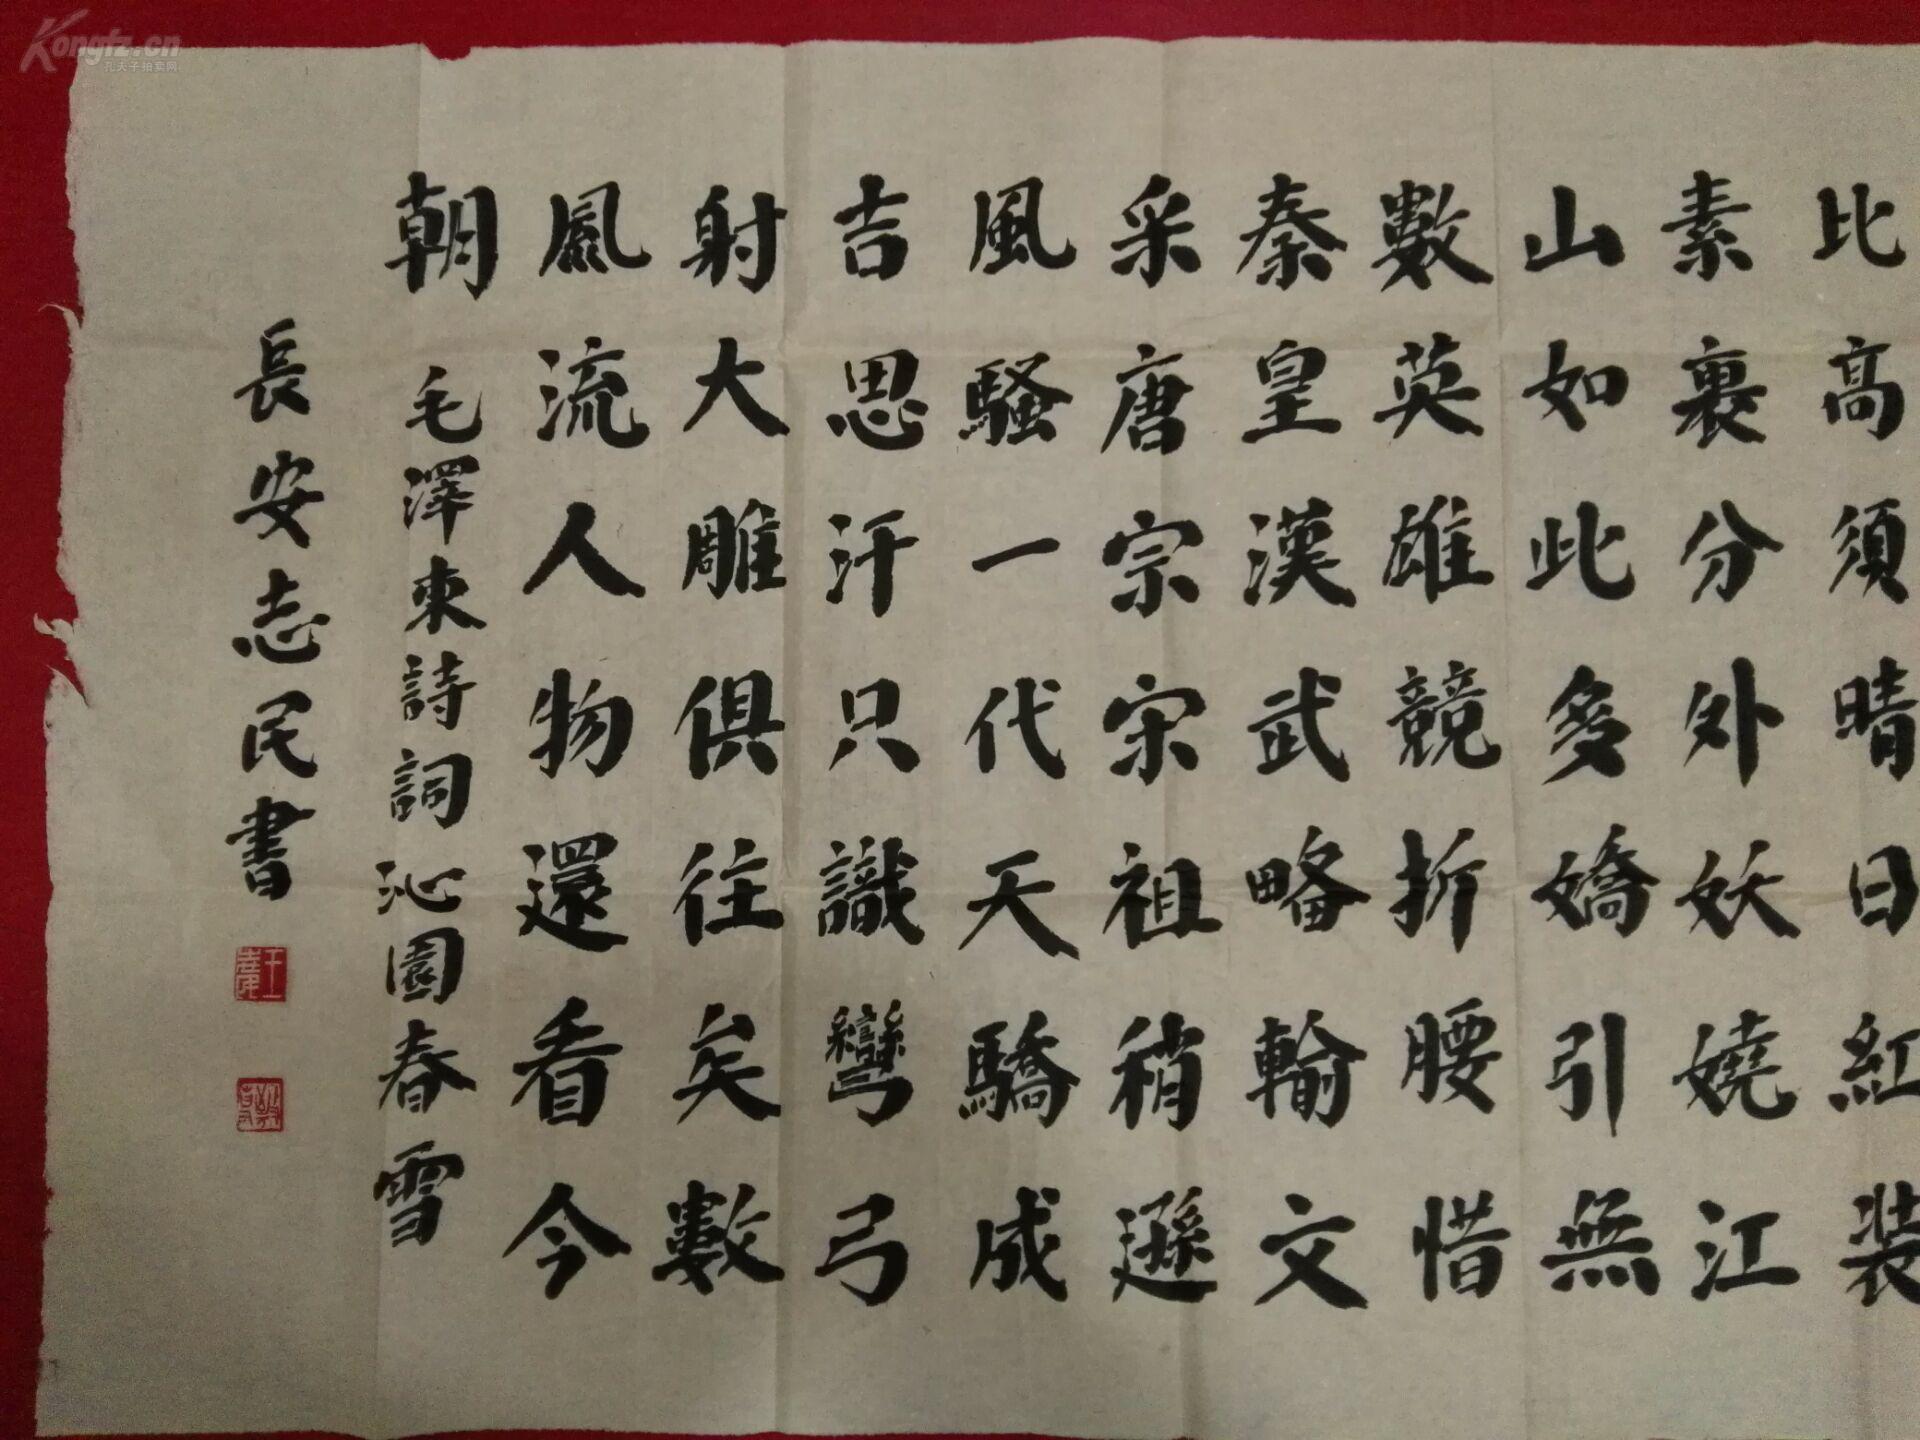 比高須晴日紅装
素裏分外妖嬈江
山如此多嬌引無
數英雄競折腰惜
秦皇漢武略輸文
采唐宗宋祖稍遜
風騷一代天驕成
吉思汗只識彎弓
射大雕俱往矣數
風流人物還看今
朝
毛澤東詩詞沁園春雪
長安志民書
Kongfz.cn
孔夫子拍卖网